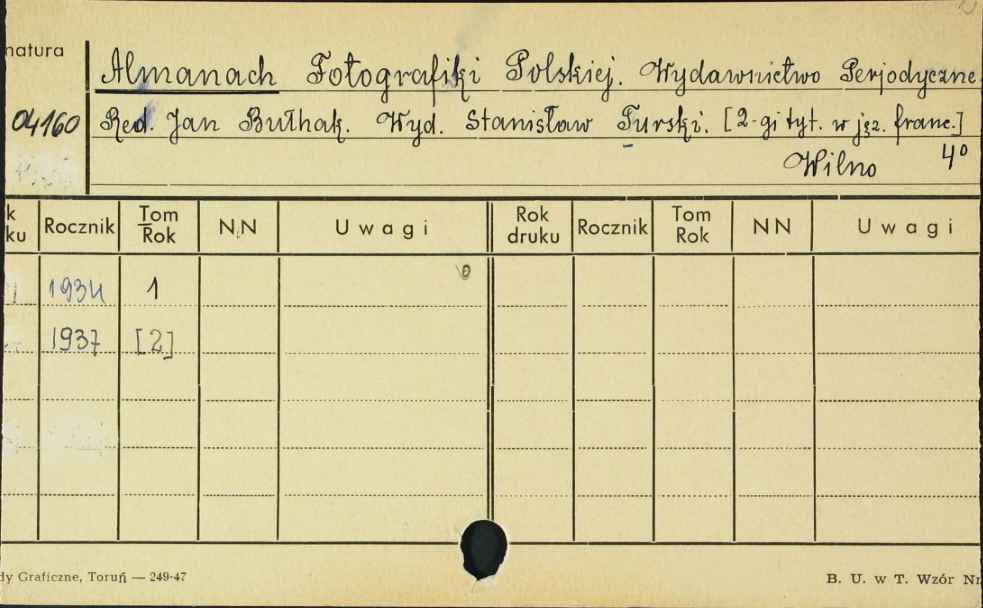 natura
Almanach Fotografiki Polskiej. Wydawnictwo Perjodyczne.
04160 Red. Jan Bułhak. Wyd. Stanisław Turski. [2-gi tyt. w jęz. franc.]
Wilno 4°
k ku Rocznik Tom Rok NN Uwagi Rok druku Rocznik Tom Rok NN Uwagi
1934 1
1937 [2]
dy Graficzne, Toruń — 249-47 B. U. w T. Wzór Nr